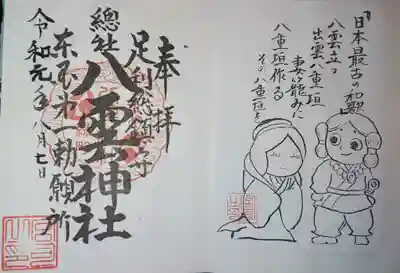 『日本最古の和歌』
八雲立つ
出雲八重垣
妻籠みに
八重垣作る
その八重垣を
奉拝
足利総鎮守
總社 八雲神社
東国第一勅願所
令和元年八月七日